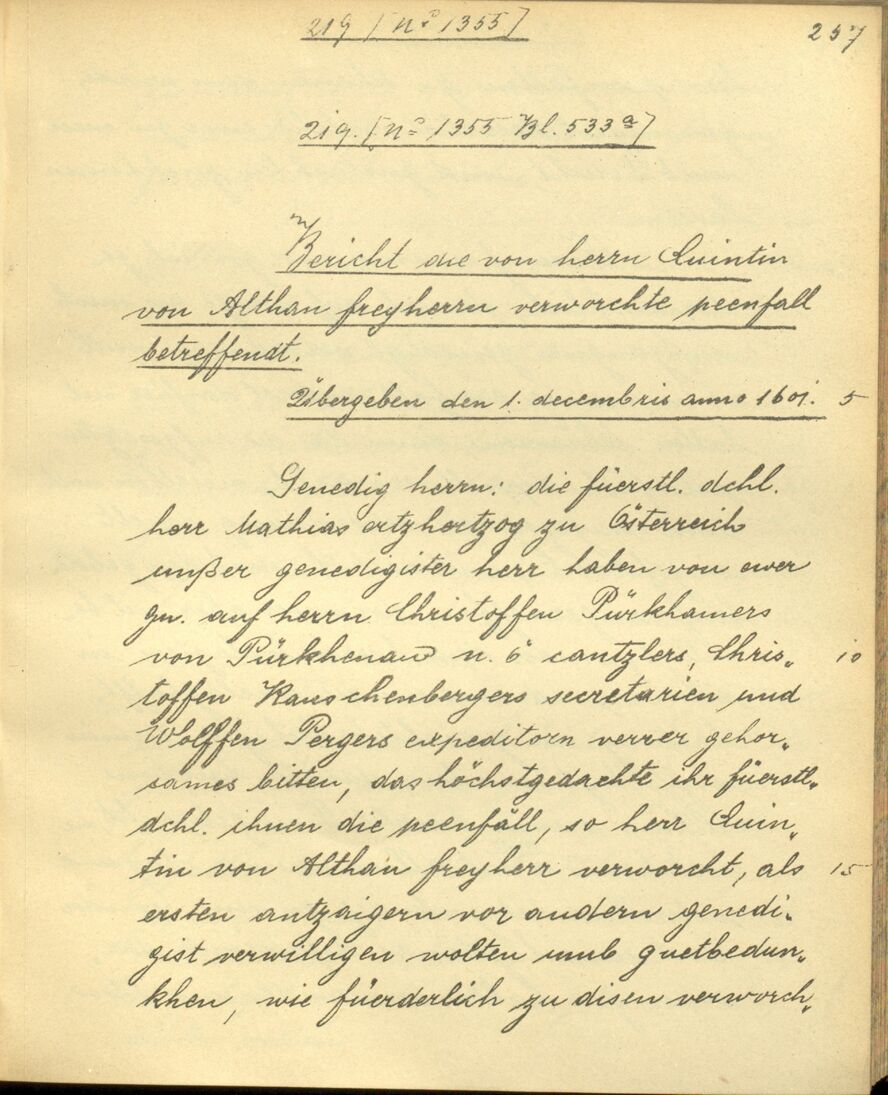 219 [nº 1355]
257
219. [nº 1355 Bl. 533ª]
Bericht die von herrn Quintin
von Althan freyherrn verworchte peenfall
betreffendt.
Übergeben den 1. decembris anno 1601. 5
Genedig herrn: die füerstl. dchl.
herr Mathias ertzhertzog zu Österreich
unßer genedigister herr haben von ewer
gn. auf herrn Christoffen Pürkhamers
von Pürkhenau n. ö cantzlers, Chris„ 10
toffen Rauschenbergers secretarien und
Wolffen Pergers expeditorn verrer gehor„
sames bitten, das höchstgedachte ihr füerstl„
dchl. ihnen die peenfäll, so herr Quin„
tin von Althan freyherr verworcht, als 15
ersten antzaigern vor andern genedi„
gist verwilligen wolten umb guetbedun„
khen, wie füerderlich zu disen verworch„